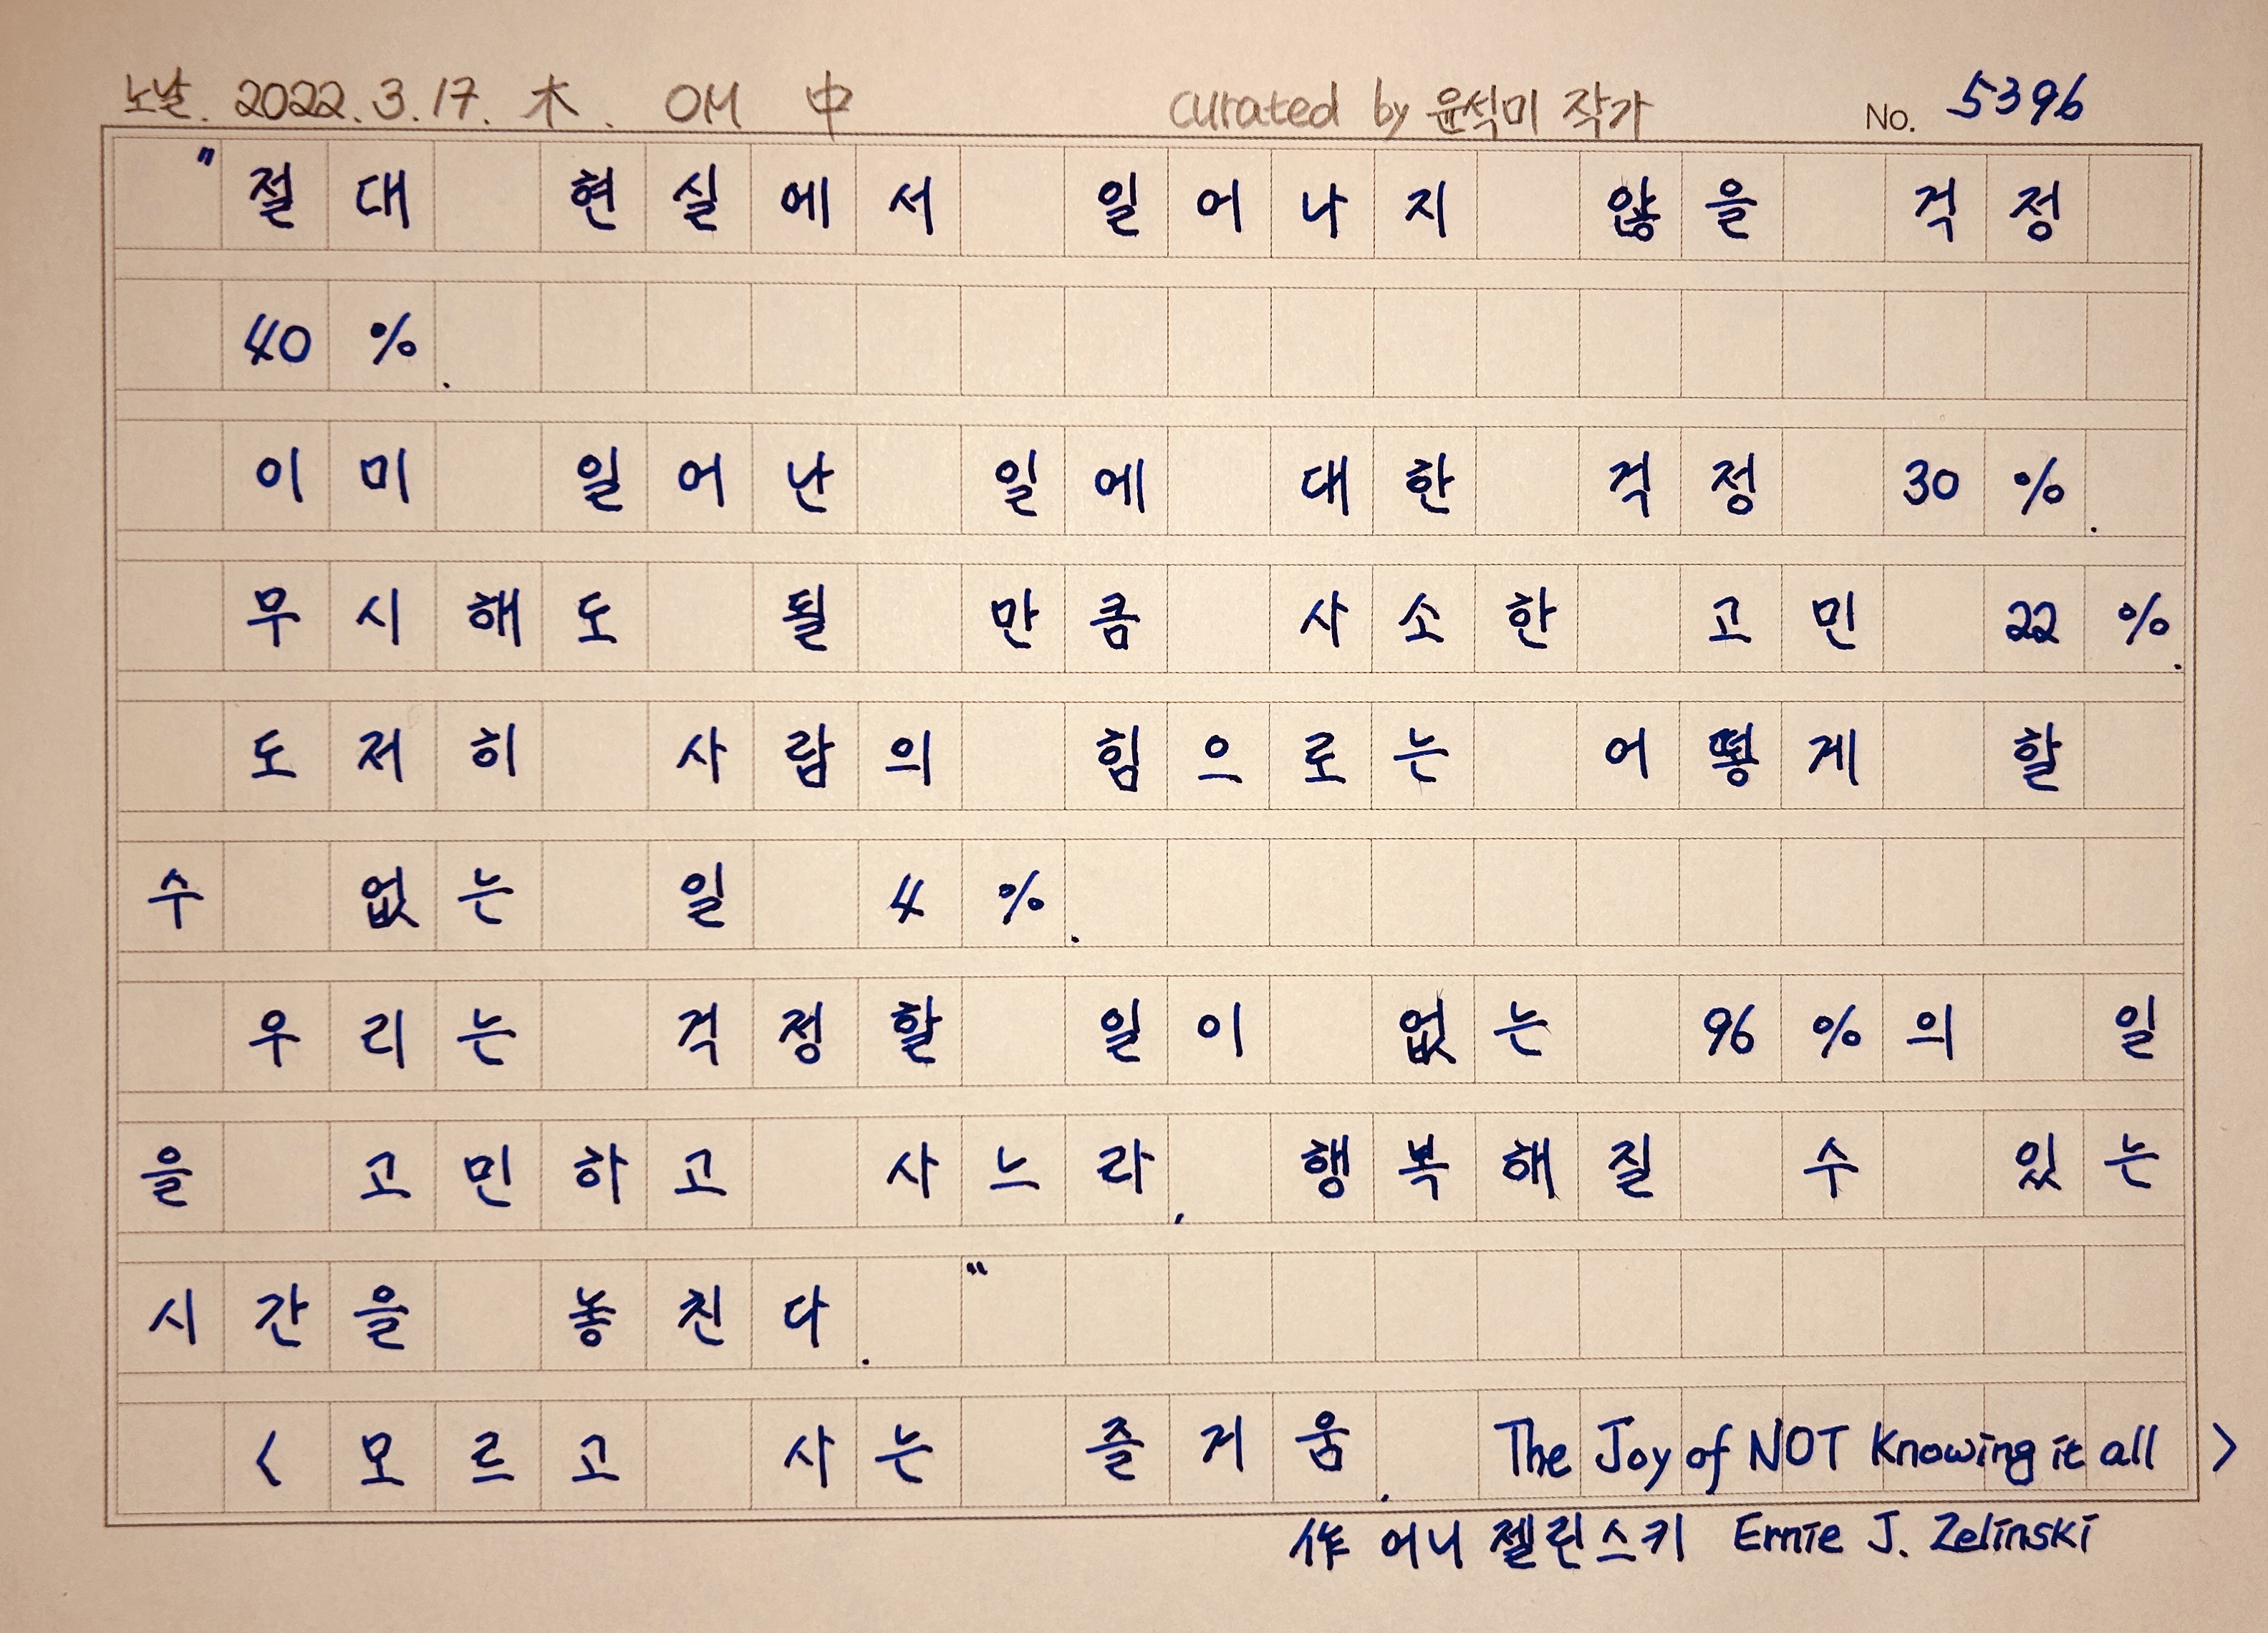 노날. 2022.3.17. 木. OM 中 curated by 윤석미 작가 No. 5396
"절대 현실에서 일어나지 않을 걱정
40%.
이미 일어난 일에 대한 걱정 30%.
무시해도 될 만큼 사소한 고민 22%.
도저히 사람의 힘으로는 어떻게 할
수 없는 일 4%.
우리는 걱정할 일이 없는 96%의 일
을 고민하고 사느라, 행복해질 수 있는
시간을 놓친다."
<모르고 사는 즐거움. The Joy of NOT Knowing it all>
作 어니 젤린스키 Ernie J. Zelinski